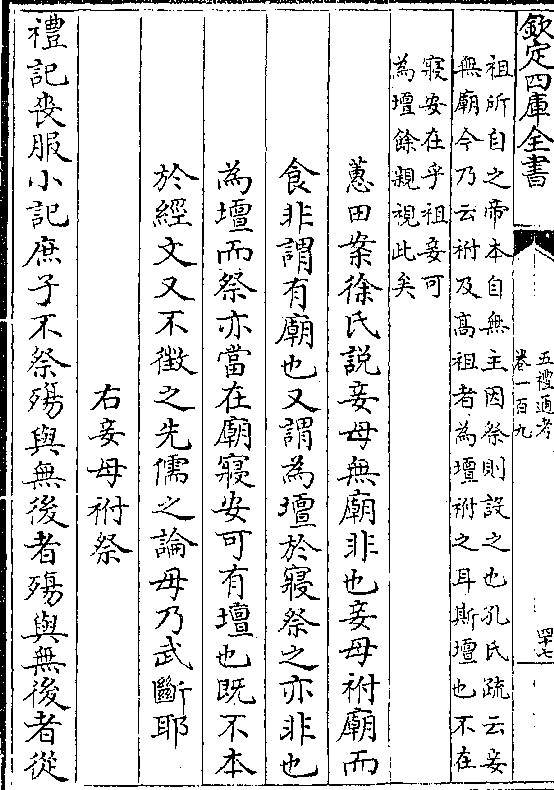 欽定四庫全書
五禮通考
卷一百九
四十七
祖所自之帝本自無主因祭則設之也孔氏疏云妾
無廟今乃云祔及高祖者為壇祔之耳斯壇也不在
寢安在乎祖妾可
為壇餘親視此矣
蕙田案徐氏說妾母無廟非也妾母祔廟而
食非謂有廟也又謂為壇於寢祭之亦非也
為壇而祭亦當在廟寢安可有壇也既不本
於經文又不徵之先儒之論毋乃武斷耶
右妾母祔祭
禮記喪服小記庶子不祭殤與無後者殤與無後者從